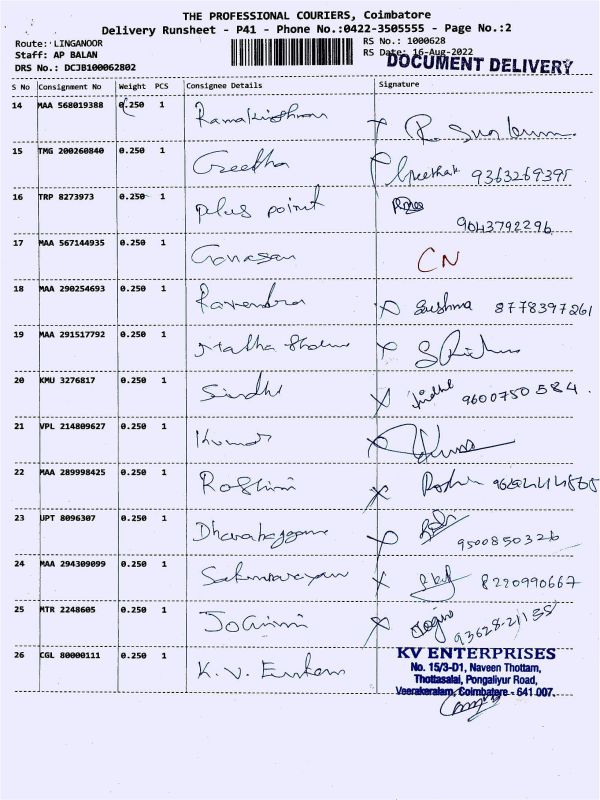 THE PROFESSIONAL COURIERS, Coimbatore
Delivery Runsheet - P41 - Phone No.:0422-3505555 - Page No.:2
Route: LINGANOOR RS No.: 1000628
Staff: AP BALAN RS Date: 16-Aug-2022
DOCUMENT DELIVERY
DRS No.: DCJB100062802
S No Consignment No Weight PCS Consignee Details Signature
14 MAA 568019388 0.250 1 Ramakrishnan
15 TMG 200260840 0.250 1 Geetha Geethak 9363269395
16 TRP 8273973 0.250 1 plus point 9043792296
17 MAA 567144935 0.250 1 Ganesan CN
18 MAA 290254693 0.250 1 Ravendra Sushma 8778397261
19 MAA 291517792 0.250 1
20 KMU 3276817 0.250 1 Sindhi 9600750584
21 VPL 214809627 0.250 1 Kumar
22 MAA 289998425 0.250 1 Roshini
23 UPT 8096307 0.250 1 9500850326
24 MAA 294309099 0.250 1 8220990667
25 MTR 2248605 0.250 1 Jogini 93628-21155
26 CGL 80000111 0.250 1 K.V.
KV ENTERPRISES
No. 15/3-D1, Naveen Thottam,
Thottasalai, Pongaliyur Road,
Veerakeralam, Coimbatore - 641 007.